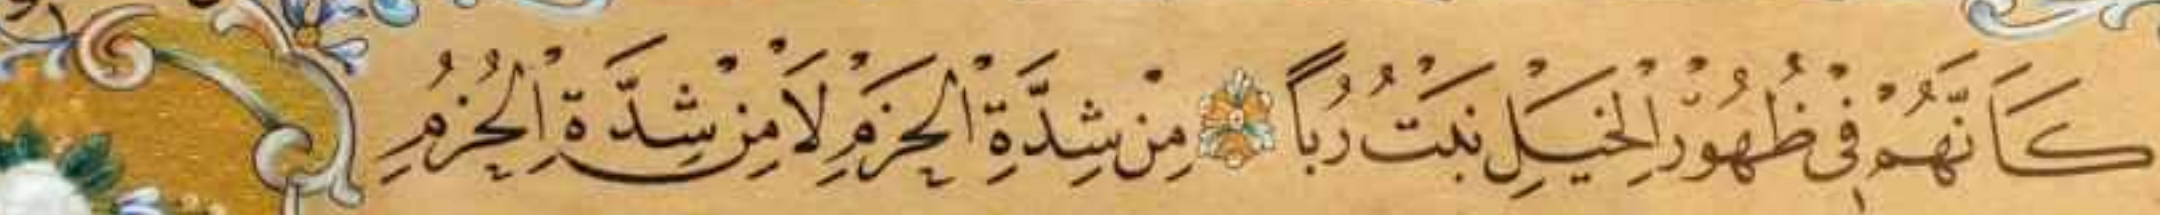 كَاَنَّهُمْ فِي ظُهُورِ الْخَيْلِ نَبْتُ رُبًا مِنْ شِدَّةِ الْحَزْمِ لَا مِنْ شِدَّةِ الْحُزُمِ